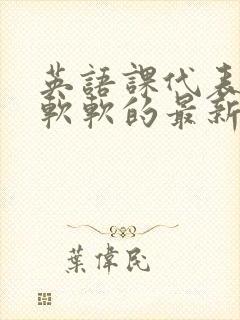 英語課代表
軟軟的最新
葉偉民